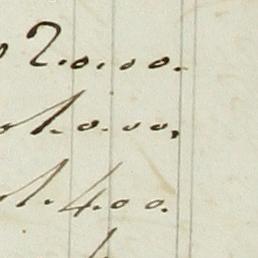 2.0.00.
1.0.00,
1.4.00.